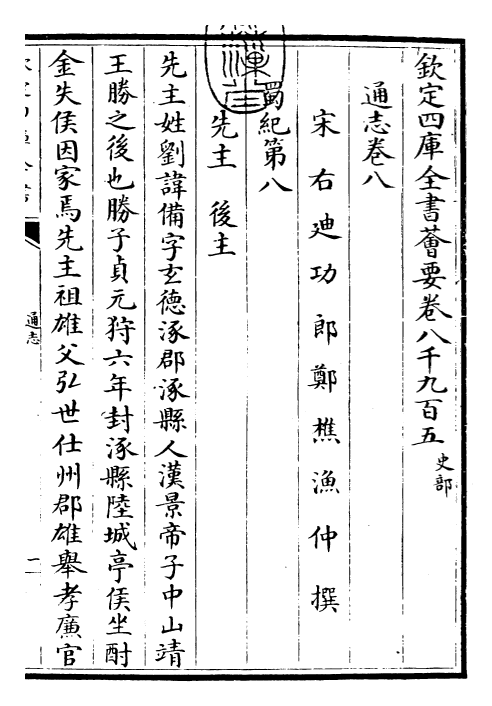 欽定四庫全書薈要卷八千九百五 史部
通志卷八
宋右迪功郎鄭樵漁仲撰
蜀紀第八
先主 後主
先主姓劉諱備字玄德涿郡涿縣人漢景帝子中山靖
王勝之後也勝子貞元狩六年封涿縣陸城亭侯坐酎
金失侯因家焉先主祖雄父弘世仕州郡雄舉孝廉官
通志
一